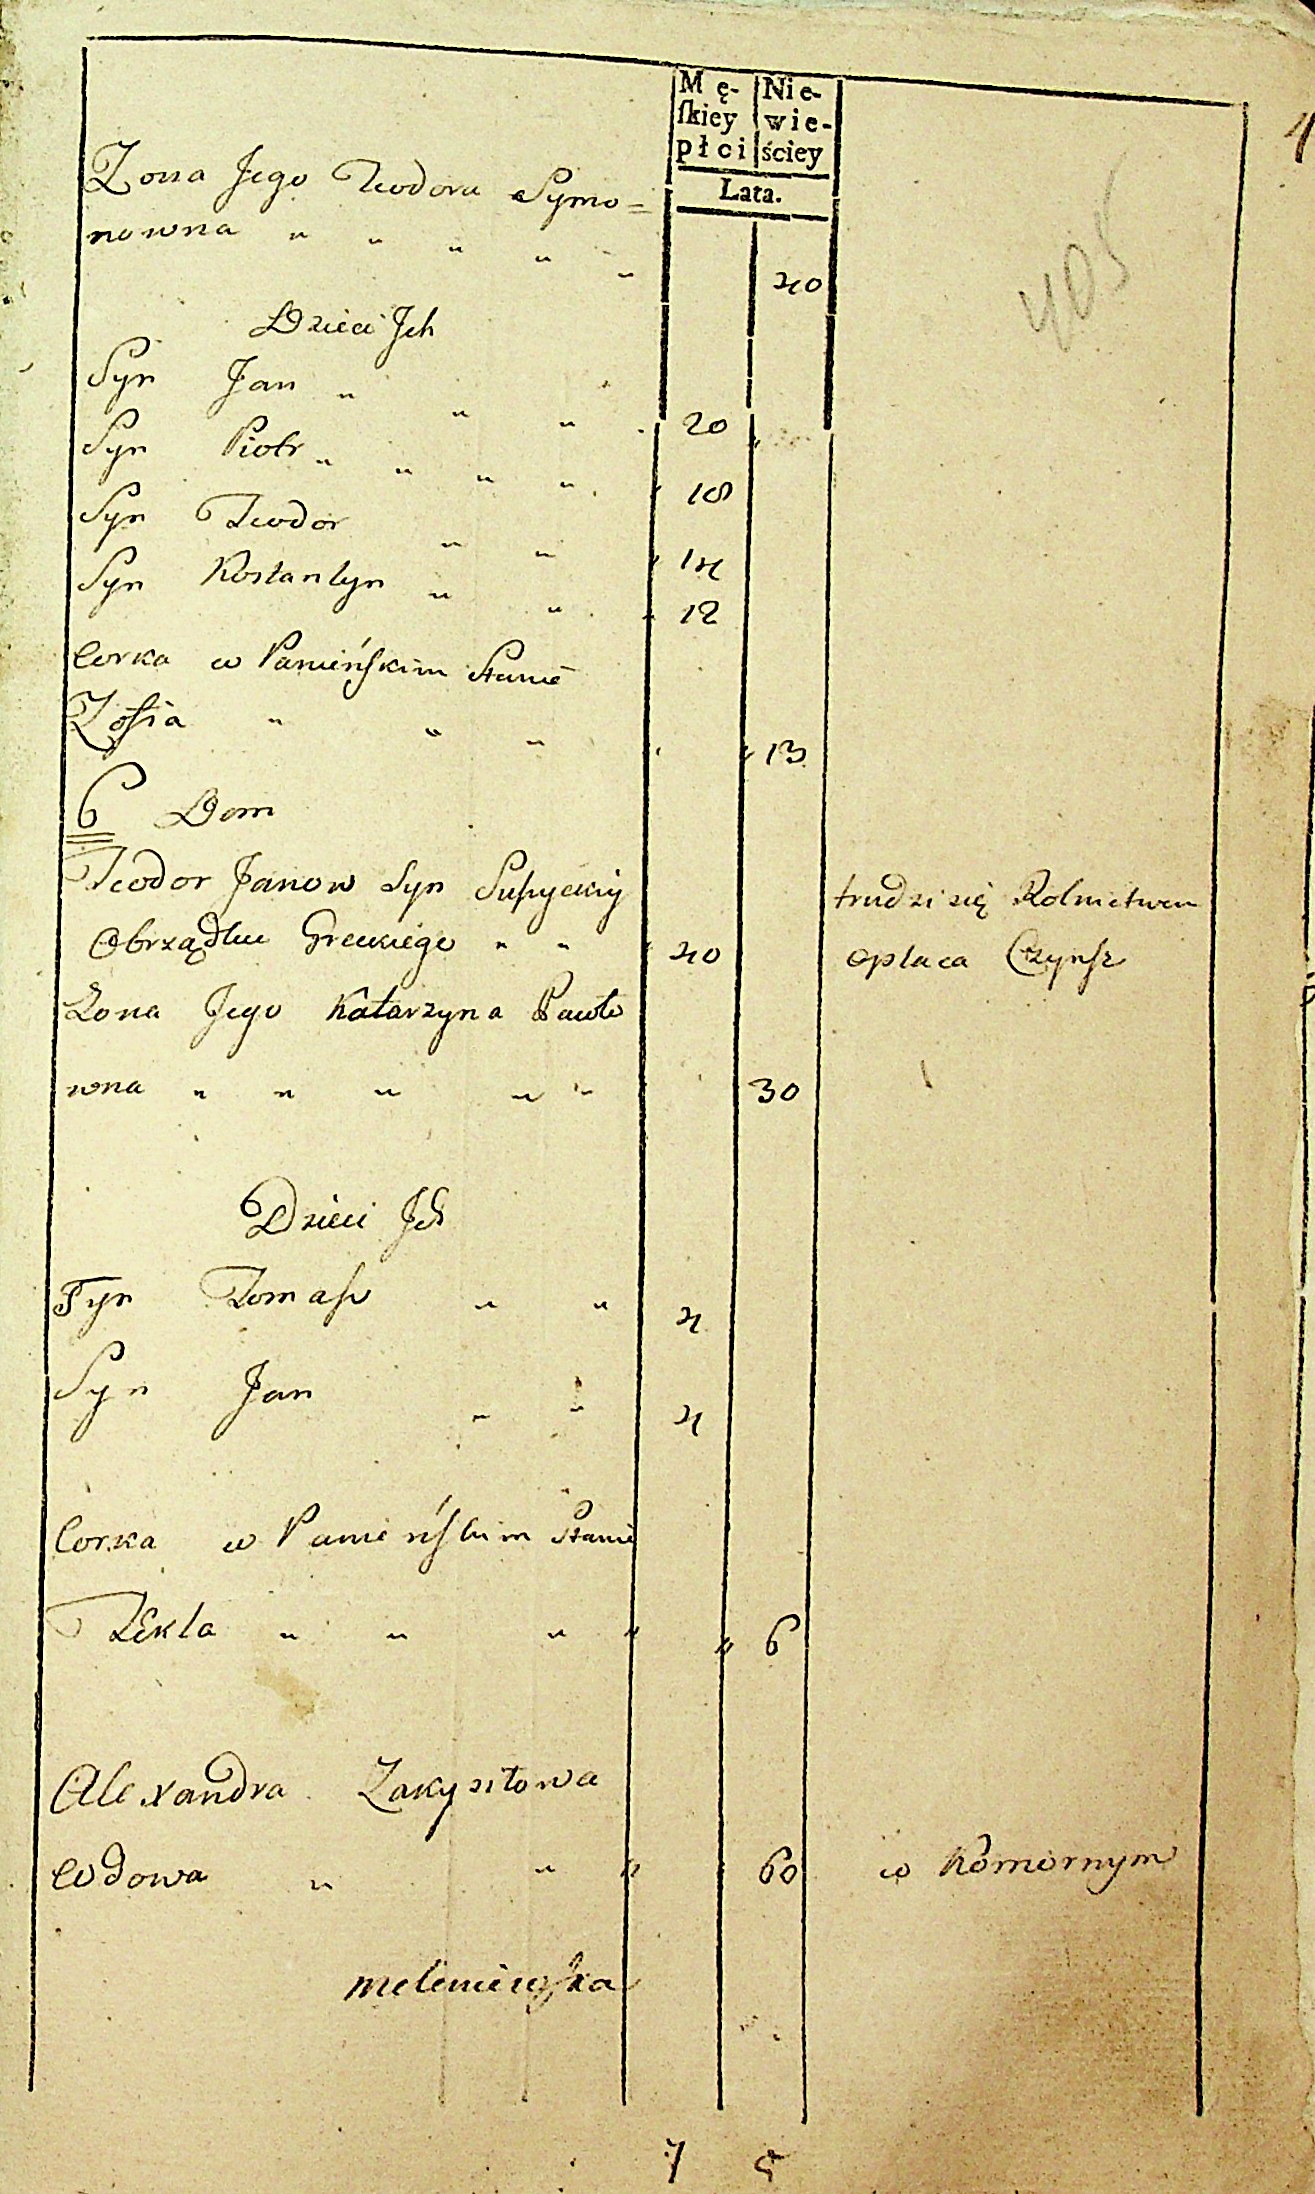 Mę- Nie-
skiey wie-
płci ściey
Lata.
405
Zona Jego Teodora Symo=
nowna " " " " " 40
Dzieci Jch
Syn Jan " " " 20 "
Syn Piotr " " " " 18
Syn Teodor " " 14
Syn Kostantyn " " 12
Corka w Panieńskim Stanie
Zofia " " " 13
6 Dom
Teodor Janow Syn trudzi się Rolnictwem
Obrządku Greckiego " " 40 opłaca Czynsz
Zona Jego Katarzyna Pawło
wna " " " " " 30
Dzieci Jch
Syn Tomasz " " 4
Syn Jan " " 4
Corka w Panieńskim Stanie
Tekla " " " " " 6
Alexandra
Wdowa " " " 60 w Komornym
7 5